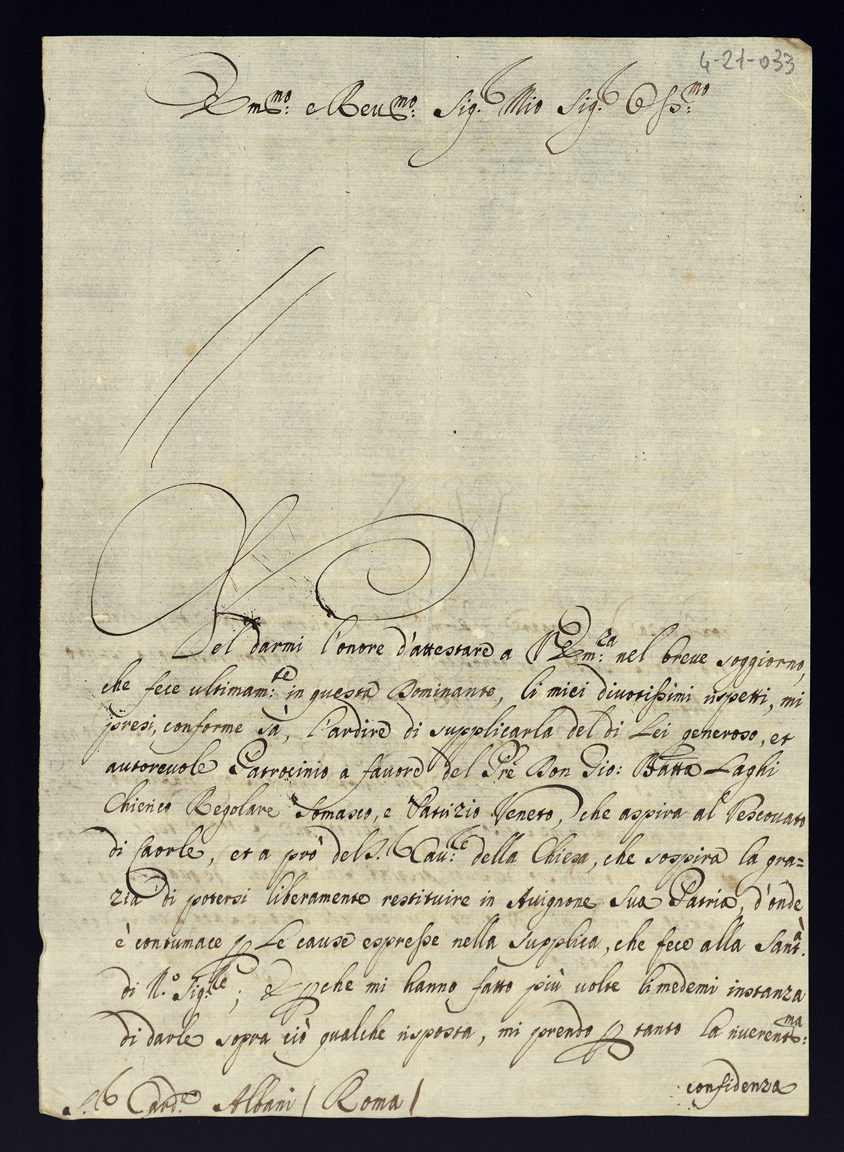 4-21-033
Em:mo e Reu:mo Sig.r Mio Sig.r Oss:mo
Nel darmi l'onore d'attestare a V. Em:za nel breue soggiorno,
che fece ultimam:te in questa Dominante, li miei diuotissimi rispetti, mi
presi, conforme sà, l'ardire di supplicarla del di Lei generoso, et
autoreuole Patrocinio a fauore del Pre Don Gio: Batta Laghi
Chierico Regolare Somasco, e Patrizio Veneto, che aspira al Vescouato
di Caorle, et a prò del S.r Cau:re della Chiesa, che sospira la gra=
zia di potersi liberamente restituire in Auignone sua Patria, d'onde
è contumace p Le cause espresse nella supplica, che fece alla Sant:à
di N.o Sig:re; E pche mi hanno fatto più uolte li medemi instanza
di darle sopra ciò qualche risposta, mi prendo p tanto la riuerent:ma
confidenza
S.r Card:e Albani / Roma /